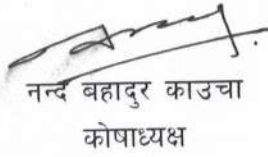 नन्द बहादुर काउचा
कोषाध्यक्ष